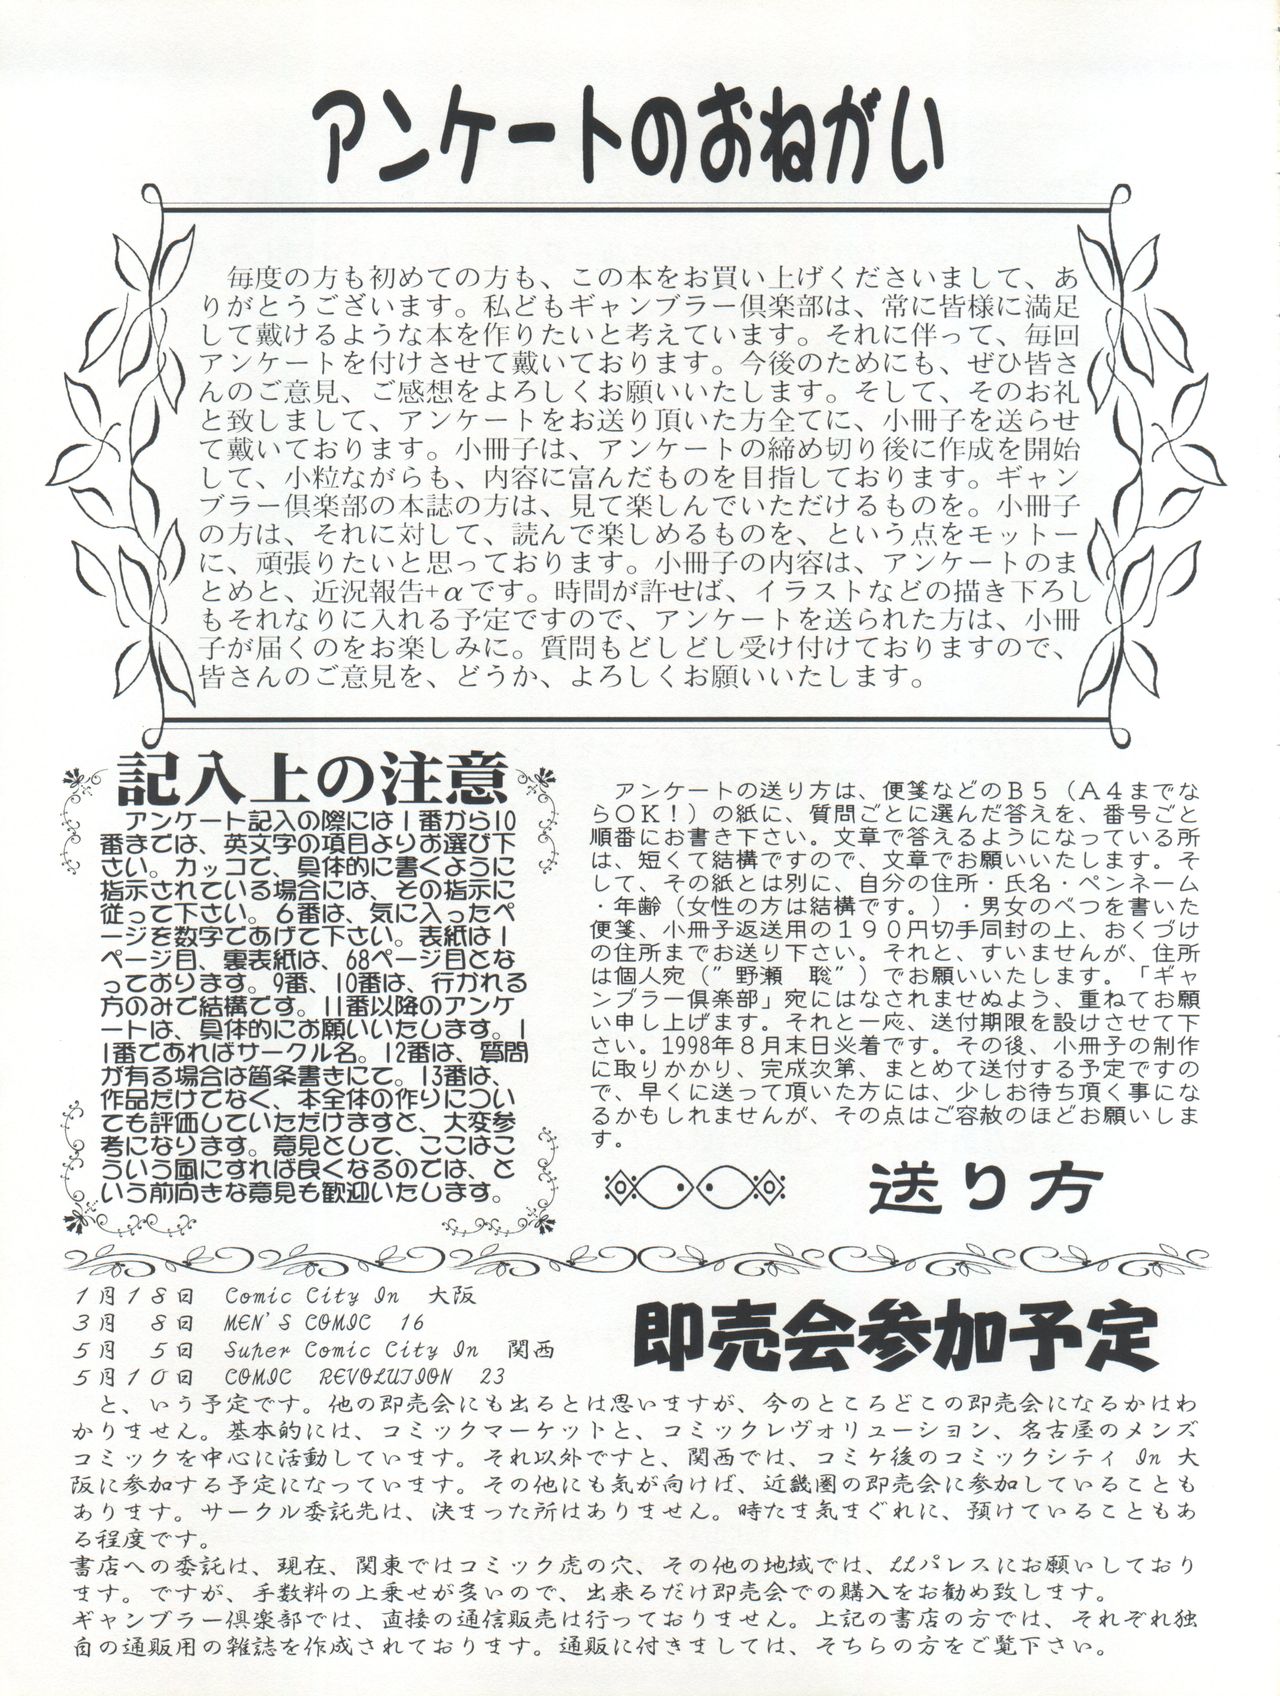 アンケートのおねがい
　毎度の方も初めての方も、この本をお買い上げくださいまして、あ
りがとうございます。私どもギャンブラー倶楽部は、常に皆様に満足
して戴けるような本を作りたいと考えています。それに伴って、毎回
アンケートを付けさせて戴いております。今後のためにも、ぜひ皆さ
んのご意見、ご感想をよろしくお願いいたします。そして、そのお礼
と致しまして、アンケートをお送り頂いた方全てに、小冊子を送らせ
て戴いております。小冊子は、アンケートの締め切り後に作成を開始
して、小粒ながらも、内容に富んだものを目指しております。ギャン
ブラー倶楽部の本誌の方は、見て楽しんでいただけるものを。小冊子
の方は、それに対して、読んで楽しめるものを、という点をモットー
に、頑張りたいと思っております。小冊子の内容は、アンケートのま
とめと、近況報告+αです。時間が許せば、イラストなどの描き下ろし
もそれなりに入れる予定ですので、アンケートを送られた方は、小冊
子が届くのをお楽しみに。質問もどしどし受け付けておりますので、
皆さんのご意見を、どうか、よろしくお願いいたします。
記入上の注意
　アンケート記入の際には1番から10
番までは、英文字の項目よりお選び下
さい。カッコで、具体的に書くように
指示されている場合には、その指示に
従って下さい。6番は、気に入ったペ
ージを数字であげて下さい。表紙は1
ページ目、裏表紙は、68ページ目とな
っております。9番、10番は、行かれる
方のみで結構です。11番以降のアンケ
ートは、具体的にお願いいたします。1
1番であればサークル名。12番は、質問
が有る場合は箇条書きにて。13番は、
作品だけでなく、本全体の作りについ
ても評価していただけますと、大変参
考になります。意見として、ここはこ
ういう風にすれば良くなるのでは、と
いう前向きな意見も歓迎いたします。
　アンケートの送り方は、便箋などのB5（A4までな
らOK！）の紙に、質問ごとに選んだ答えを、番号ごと
順番にお書き下さい。文章で答えるようになっている所
は、短くて結構ですので、文章でお願いいたします。そ
して、その紙とは別に、自分の住所・氏名・ペンネーム
・年齢（女性の方は結構です。）・男女のべつを書いた
便箋、小冊子返送用の190円切手同封の上、おくづけ
の住所までお送り下さい。それと、すいませんが、住所
は個人宛（”野瀬　聡”）でお願いいたします。「ギャ
ンブラー倶楽部」宛にはなされませぬよう、重ねてお願
い申し上げます。それと一応、送付期限を設けさせて下
さい。1998年8月末日必着です。その後、小冊子の制作
に取りかかり、完成次第、まとめて送付する予定ですの
で、早くに送って頂いた方には、少しお待ち頂く事にな
るかもしれませんが、その点はご容赦のほどお願いしま
す。
送り方
1月18日　Comic City In　大阪
3月　8日　MEN'S COMIC　16
5月　5日　Super Comic City In　関西
5月10日　COMIC　REVOLUTION　23
即売会参加予定
　と、いう予定です。他の即売会にも出るとは思いますが、今のところどこの即売会になるかはわ
かりません。基本的には、コミックマーケットと、コミックレヴォリューション、名古屋のメンズ
コミックを中心に活動しています。それ以外ですと、関西では、コミケ後のコミックシティ In 大
阪に参加する予定になっています。その他にも気が向けば、近畿圏の即売会に参加していることも
あります。サークル委託先は、決まった所はありません。時たま気まぐれに、預けていることもあ
る程度です。
書店への委託は、現在、関東ではコミック虎の穴、その他の地域では、LLパレスにお願いしており
ます。ですが、手数料の上乗せが多いので、出来るだけ即売会での購入をお勧め致します。
ギャンブラー倶楽部では、直接の通信販売は行っておりません。上記の書店の方では、それぞれ独
自の通販用の雑誌を作成されております。通販に付きましては、そちらの方をご覧下さい。